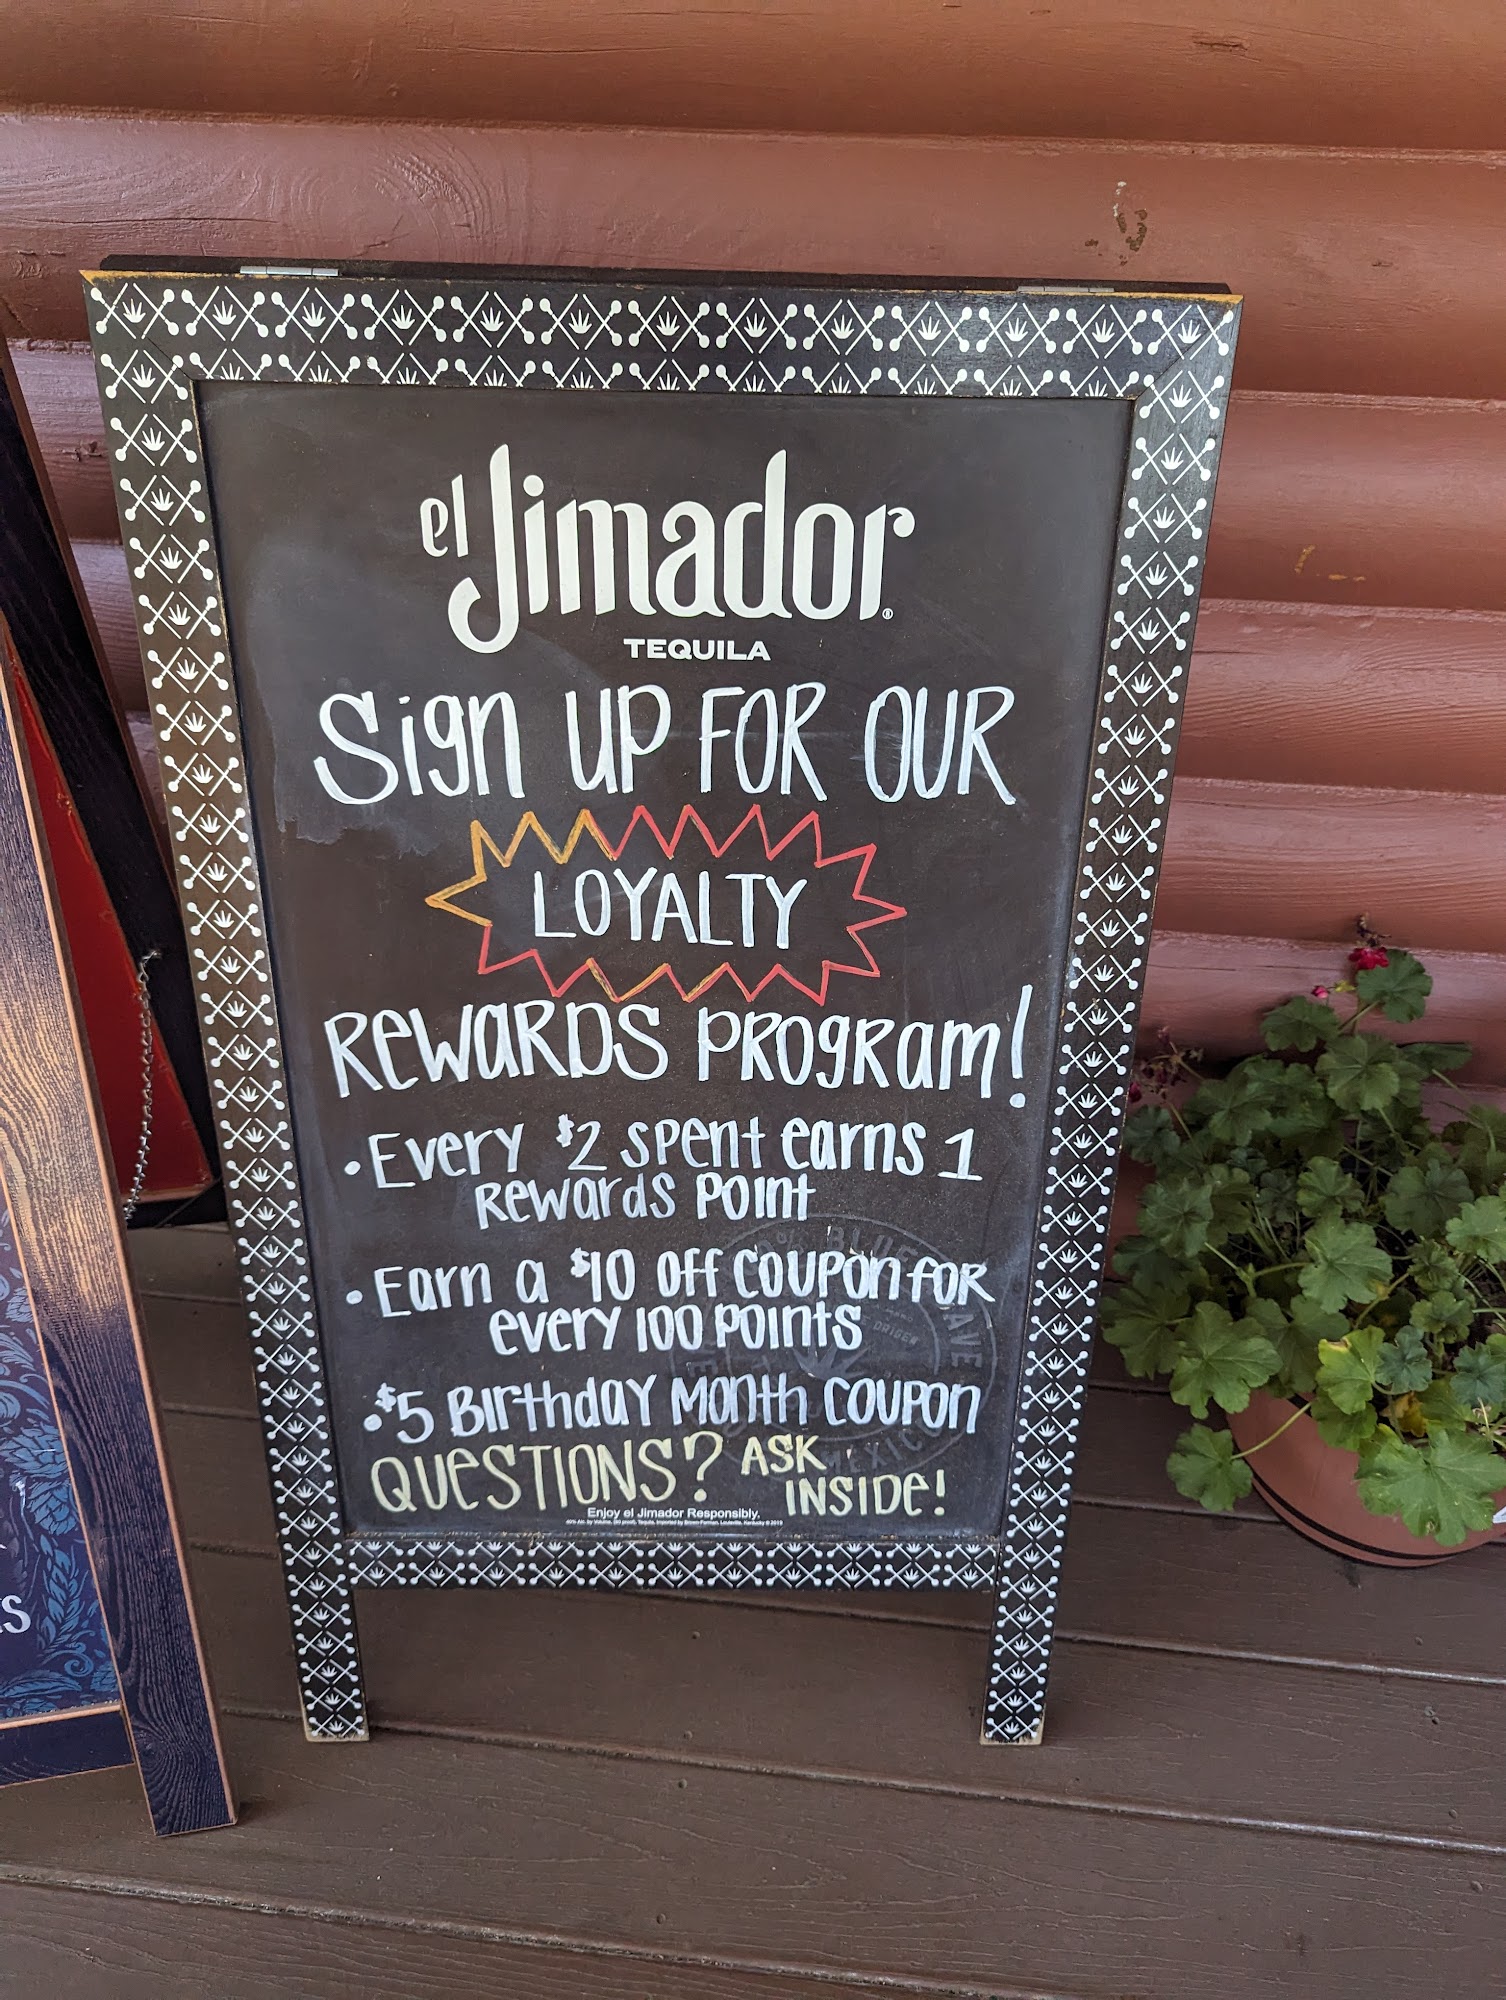 el Jimador®
TEQUILA
Sign UP FOR OUR
LOYALTY
REWARDS PROGRAM!
• Every $2 spent earns 1
Rewards Point
• Earn a $10 off coupon for
every 100 points
• $5 Birthday Month coupon
QUESTIONS? ASK
INSIDE!
Enjoy el Jimador Responsibly.